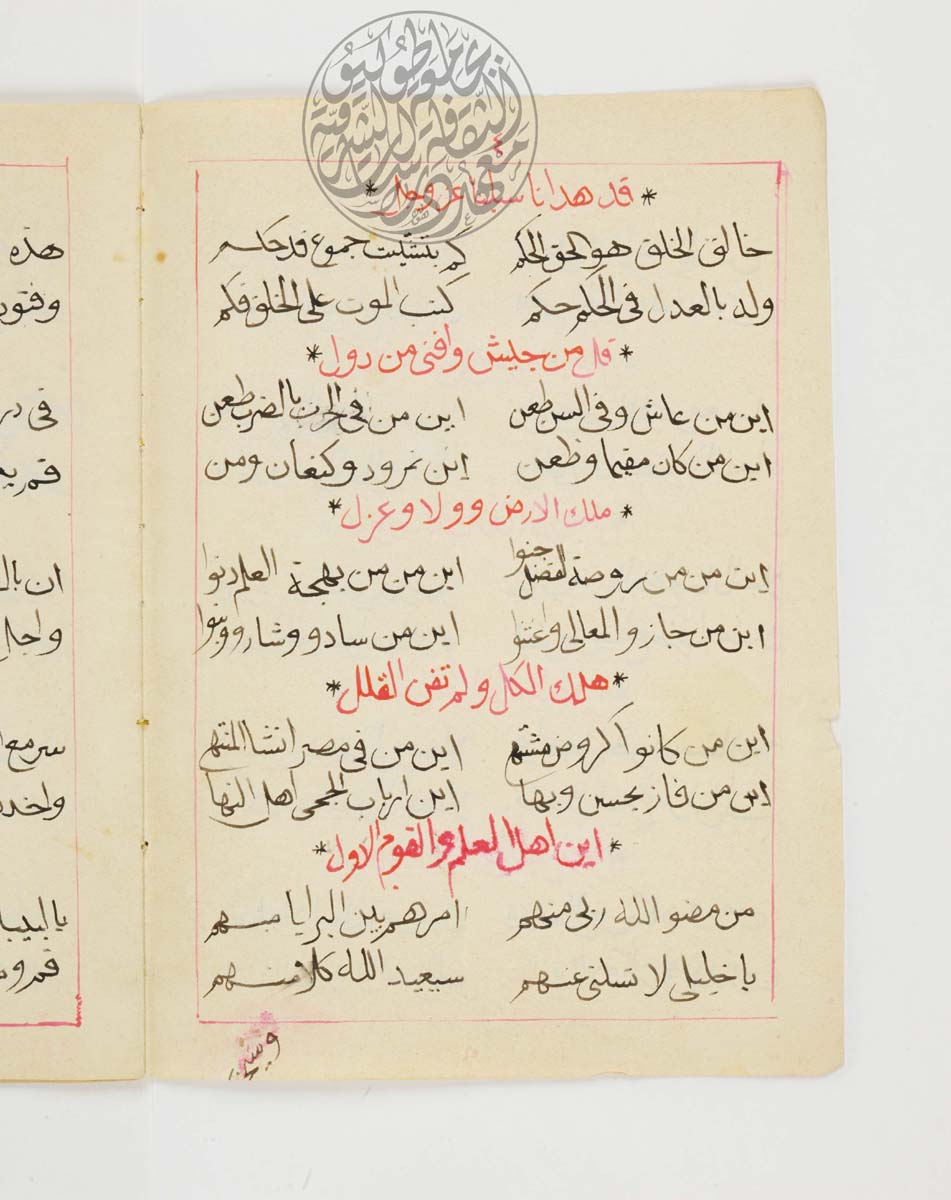 ٤
* قد هدانا سبلنا عز وجل *
خالق الخلق هو الحق الحكم كم بتشتيت جموع قد حكم
وله بالعدل فى الحكم حكم كتب الموت على الخلق فكم
* فل من جيش وافنى من دول *
اين من عاش وفى السن طعن اين من فى الحرب بالضرب طعن
اين من كان مقيما وظعن اين نمرود وكنعان ومن
* ملك الارض وولا وعزل *
اين من من روضة الفضل جنوا اين من من بهجة العلم دنوا
اين من حازو المعالى واعتنوا اين من سادو وشادو وبنوا
* هلك الكل ولم تغن القلل *
اين من كانوا كروض مشتهى اين من فى مصر انشا المنتهى
اين من فاز بحسن وبها اين ارباب الحجى اهل النها
* اين اهل العلم والقوم الاول *
من مضو الله ربى منهم امرهم بين البرايا مبهم
يا خليلى لا تسلنى عنهم سيعيد الله كلا منهم
هذه
وفتو
فى در
قم
ان بال
واجال
سر مع
واخد
يا لبيبا
قم و